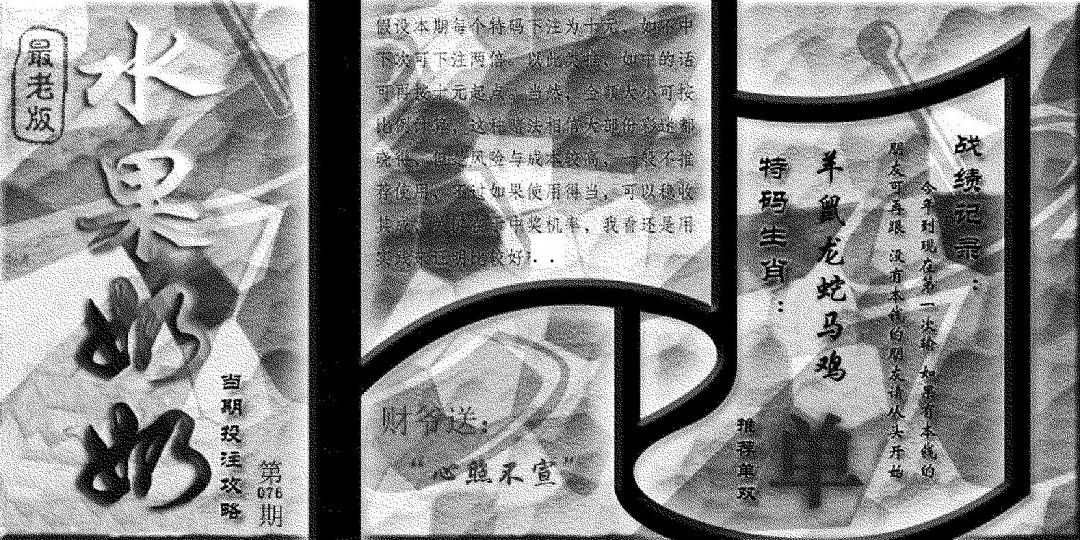 最老版
水果奶奶
当期投注攻略
第076期
假设本期每个特码下注为十元，如不中
下次可下注两倍。以此类推，如中的话
可再按十元起点。当然，金额大小可按
比例计算，这种赌法相信大部份彩迷都
晓得，但是风险与成本较高，一般不推
荐使用。不过如果使用得当，可以稳收
中奖机率，我看还是用
实践来证明比较好！..
财爷送：
“心照不宣”
战绩记录：
今年到现在第一次输 如果有本钱的
朋友可再跟 没有本钱的朋友请从头开始
羊鼠龙蛇马鸡
特码生肖：
推荐单双
单